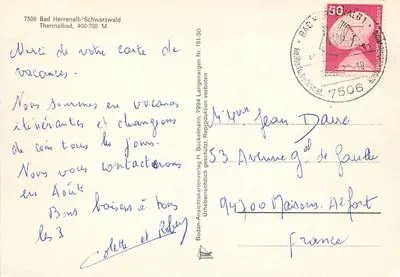 7506 Bad Herrenalb/Schwarzwald
Thermalbad, 400-700 M.
Merci de votre carte de
vacances.
Nous sommes en vacances
itinérantes et changeons
de coin tous les jours.
Nous vous contacterons
en Août
Bons baisers à tous
les 3
Colette et
Bodan-Ansichtskartenverlag H. Bockelmann, 7994 Langenargen Nr. 151-30
Urheberrechtlich geschützt. Reproduktion verboten
50
BAD HERRENALB 1
7506
Jean Daire
53 Avenue Gd de Gaulle
94700 Maisons. Alfort
France